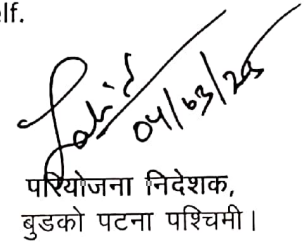 elf.
04/03/25
परियोजना निदेशक,
बुडको पटना पश्चिमी।